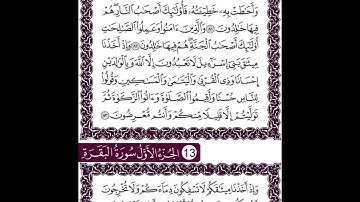 وَأَحَٰطَتْ بِهِۦ خَطِيٓـَٔتُهُۥ فَأُو۟لَٰٓئِكَ أَصْحَٰبُ ٱلنَّارِ هُمْ
فِيهَا خَٰلِدُونَ ٨١ وَٱلَّذِينَ ءَامَنُوا۟ وَعَمِلُوا۟ ٱلصَّٰلِحَٰتِ
أُو۟لَٰٓئِكَ أَصْحَٰبُ ٱلْجَنَّةِ هُمْ فِيهَا خَٰلِدُونَ ٨٢ وَإِذْ أَخَذْنَا
مِيثَٰقَ بَنِىٓ إِسْرَٰٓءِيلَ لَا تَعْبُدُونَ إِلَّا ٱللَّهَ وَبِٱلْوَٰلِدَيْنِ
إِحْسَانًا وَذِى ٱلْقُرْبَىٰ وَٱلْيَتَٰمَىٰ وَٱلْمَسَٰكِينِ وَقُولُوا۟
لِلنَّاسِ حُسْنًا وَأَقِيمُوا۟ ٱلصَّلَوٰةَ وَءَاتُوا۟ ٱلزَّكَوٰةَ ثُمَّ
تَوَلَّيْتُمْ إِلَّا قَلِيلًا مِّنكُمْ وَأَنتُم مُّعْرِضُونَ ٨٣
الجُزْءُ الأَوَّلُ سُورَةُ البَقَرَةِ 13
وَإِذْ أَخَذْنَا مِيثَٰقَكُمْ لَا تَسْفِكُونَ دِمَآءَكُمْ وَلَا تُخْرِجُونَ